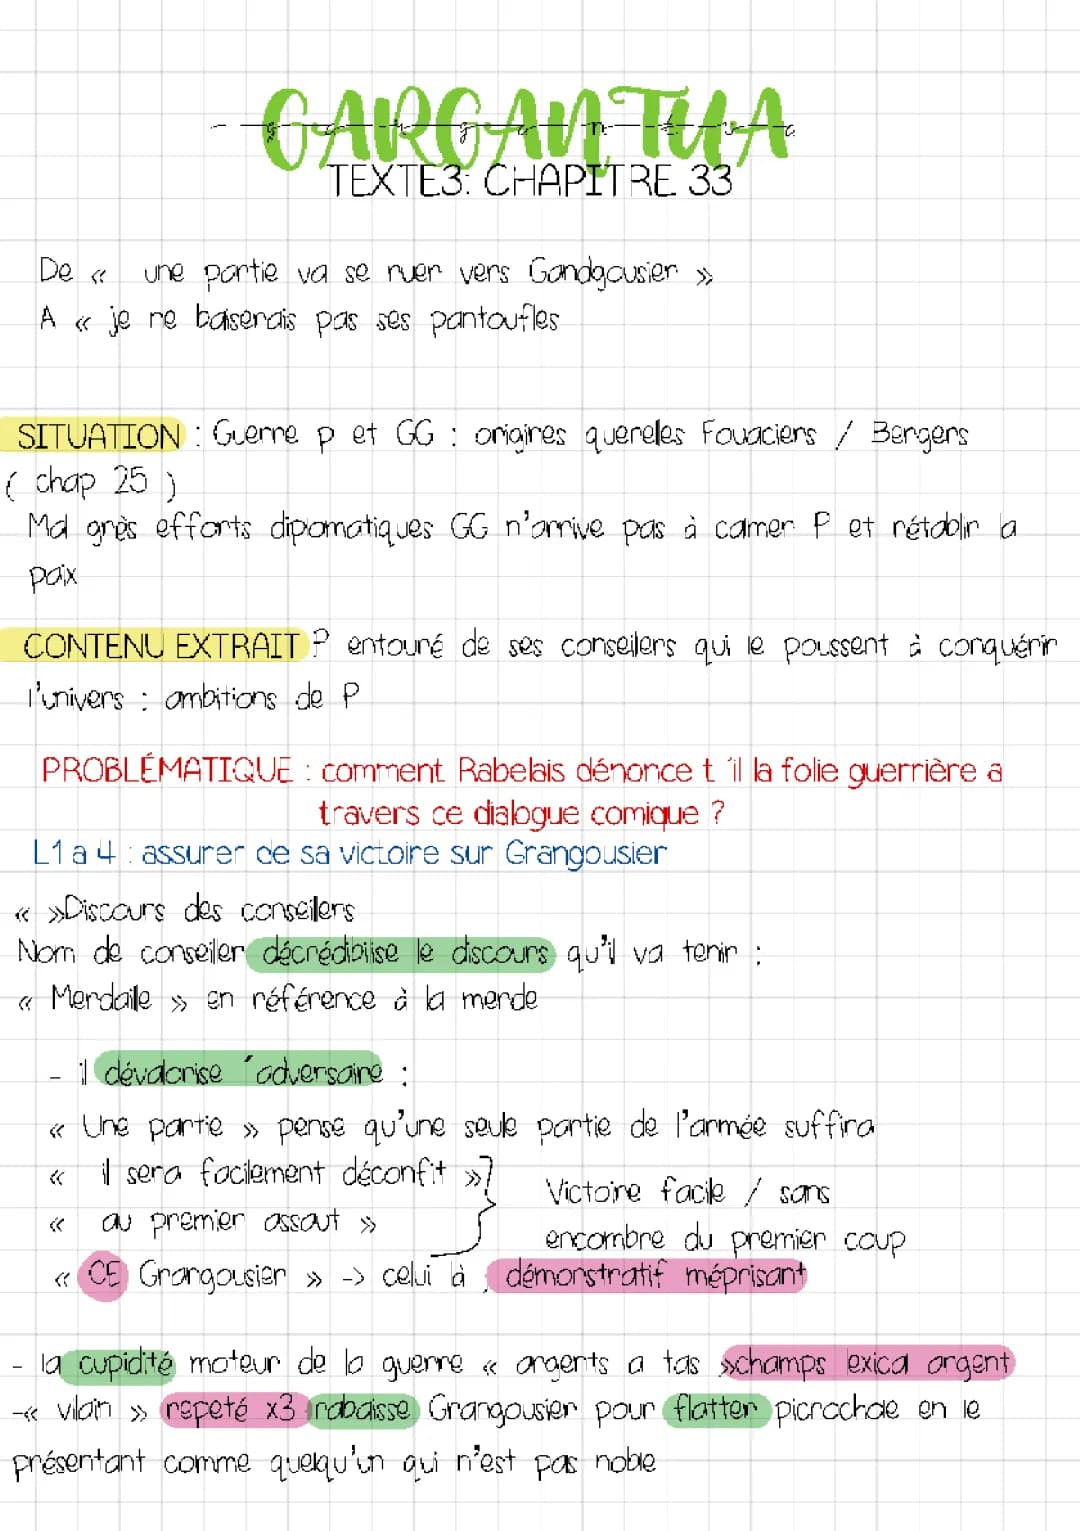 GARGANTUA
g a r g a n t u a
TEXTE3: CHAPITRE 33
De « une partie va se ruer vers Gandgousier »
A « je ne baiserais pas ses pantoufles
SITUATION : Guerre p et GG : origines quereles Fouaciers / Bergers
( chap 25 )
Mal grès efforts dipomatiques GG n'arrive pas à camer P et rétablir la
paix
CONTENU EXTRAIT P entouré de ses conseilers qui le poussent à conquérir
l'univers : ambitions de P
PROBLÉMATIQUE : comment Rabelais dénonce t 'il la folie guerrière a
travers ce dialogue comique ?
L1 a 4 : assurer de sa victoire sur Grangousier
« »Discours des conseilers
Nom de conseiler décrédibilise le discours qu'il va tenir :
« Merdaille » en référence à la merde
- il dévalorise 'adversaire :
« Une partie » pense qu'une seule partie de l'armée suffira
« il sera facilement déconfit »
« au premier assaut »
Victoire facile / sans
encombre du premier coup
« CE Grangousier » -> celui là ; démonstratif méprisant
- la cupidité moteur de la guerre « argents a tas »champs lexica argent
-« vilain » repeté x3 rabaisse Grangousier pour flatter picrochole en le
présentant comme quelqu'un qui n'est pas noble